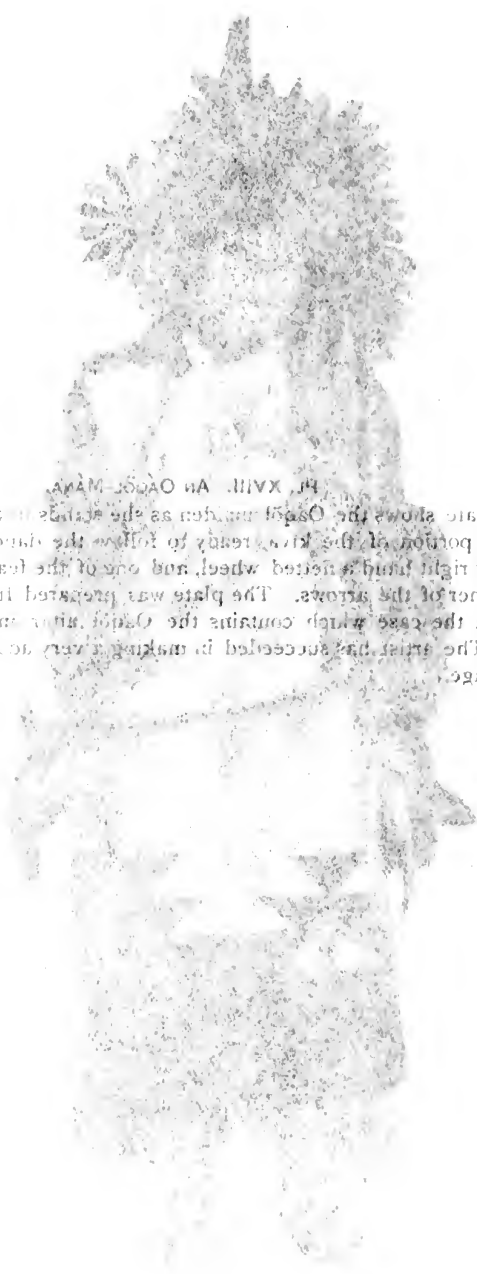 PL. XVIII. AN OÁQÖL-MÁNA.
shows the Oáqöl maiden as she stands
portion of the kiva, ready to follow the
right hand a netted wheel, and one of the
of the arrows. The plate was prepared
the case which contains the Oáqöl altar
The artist has succeeded in making a very